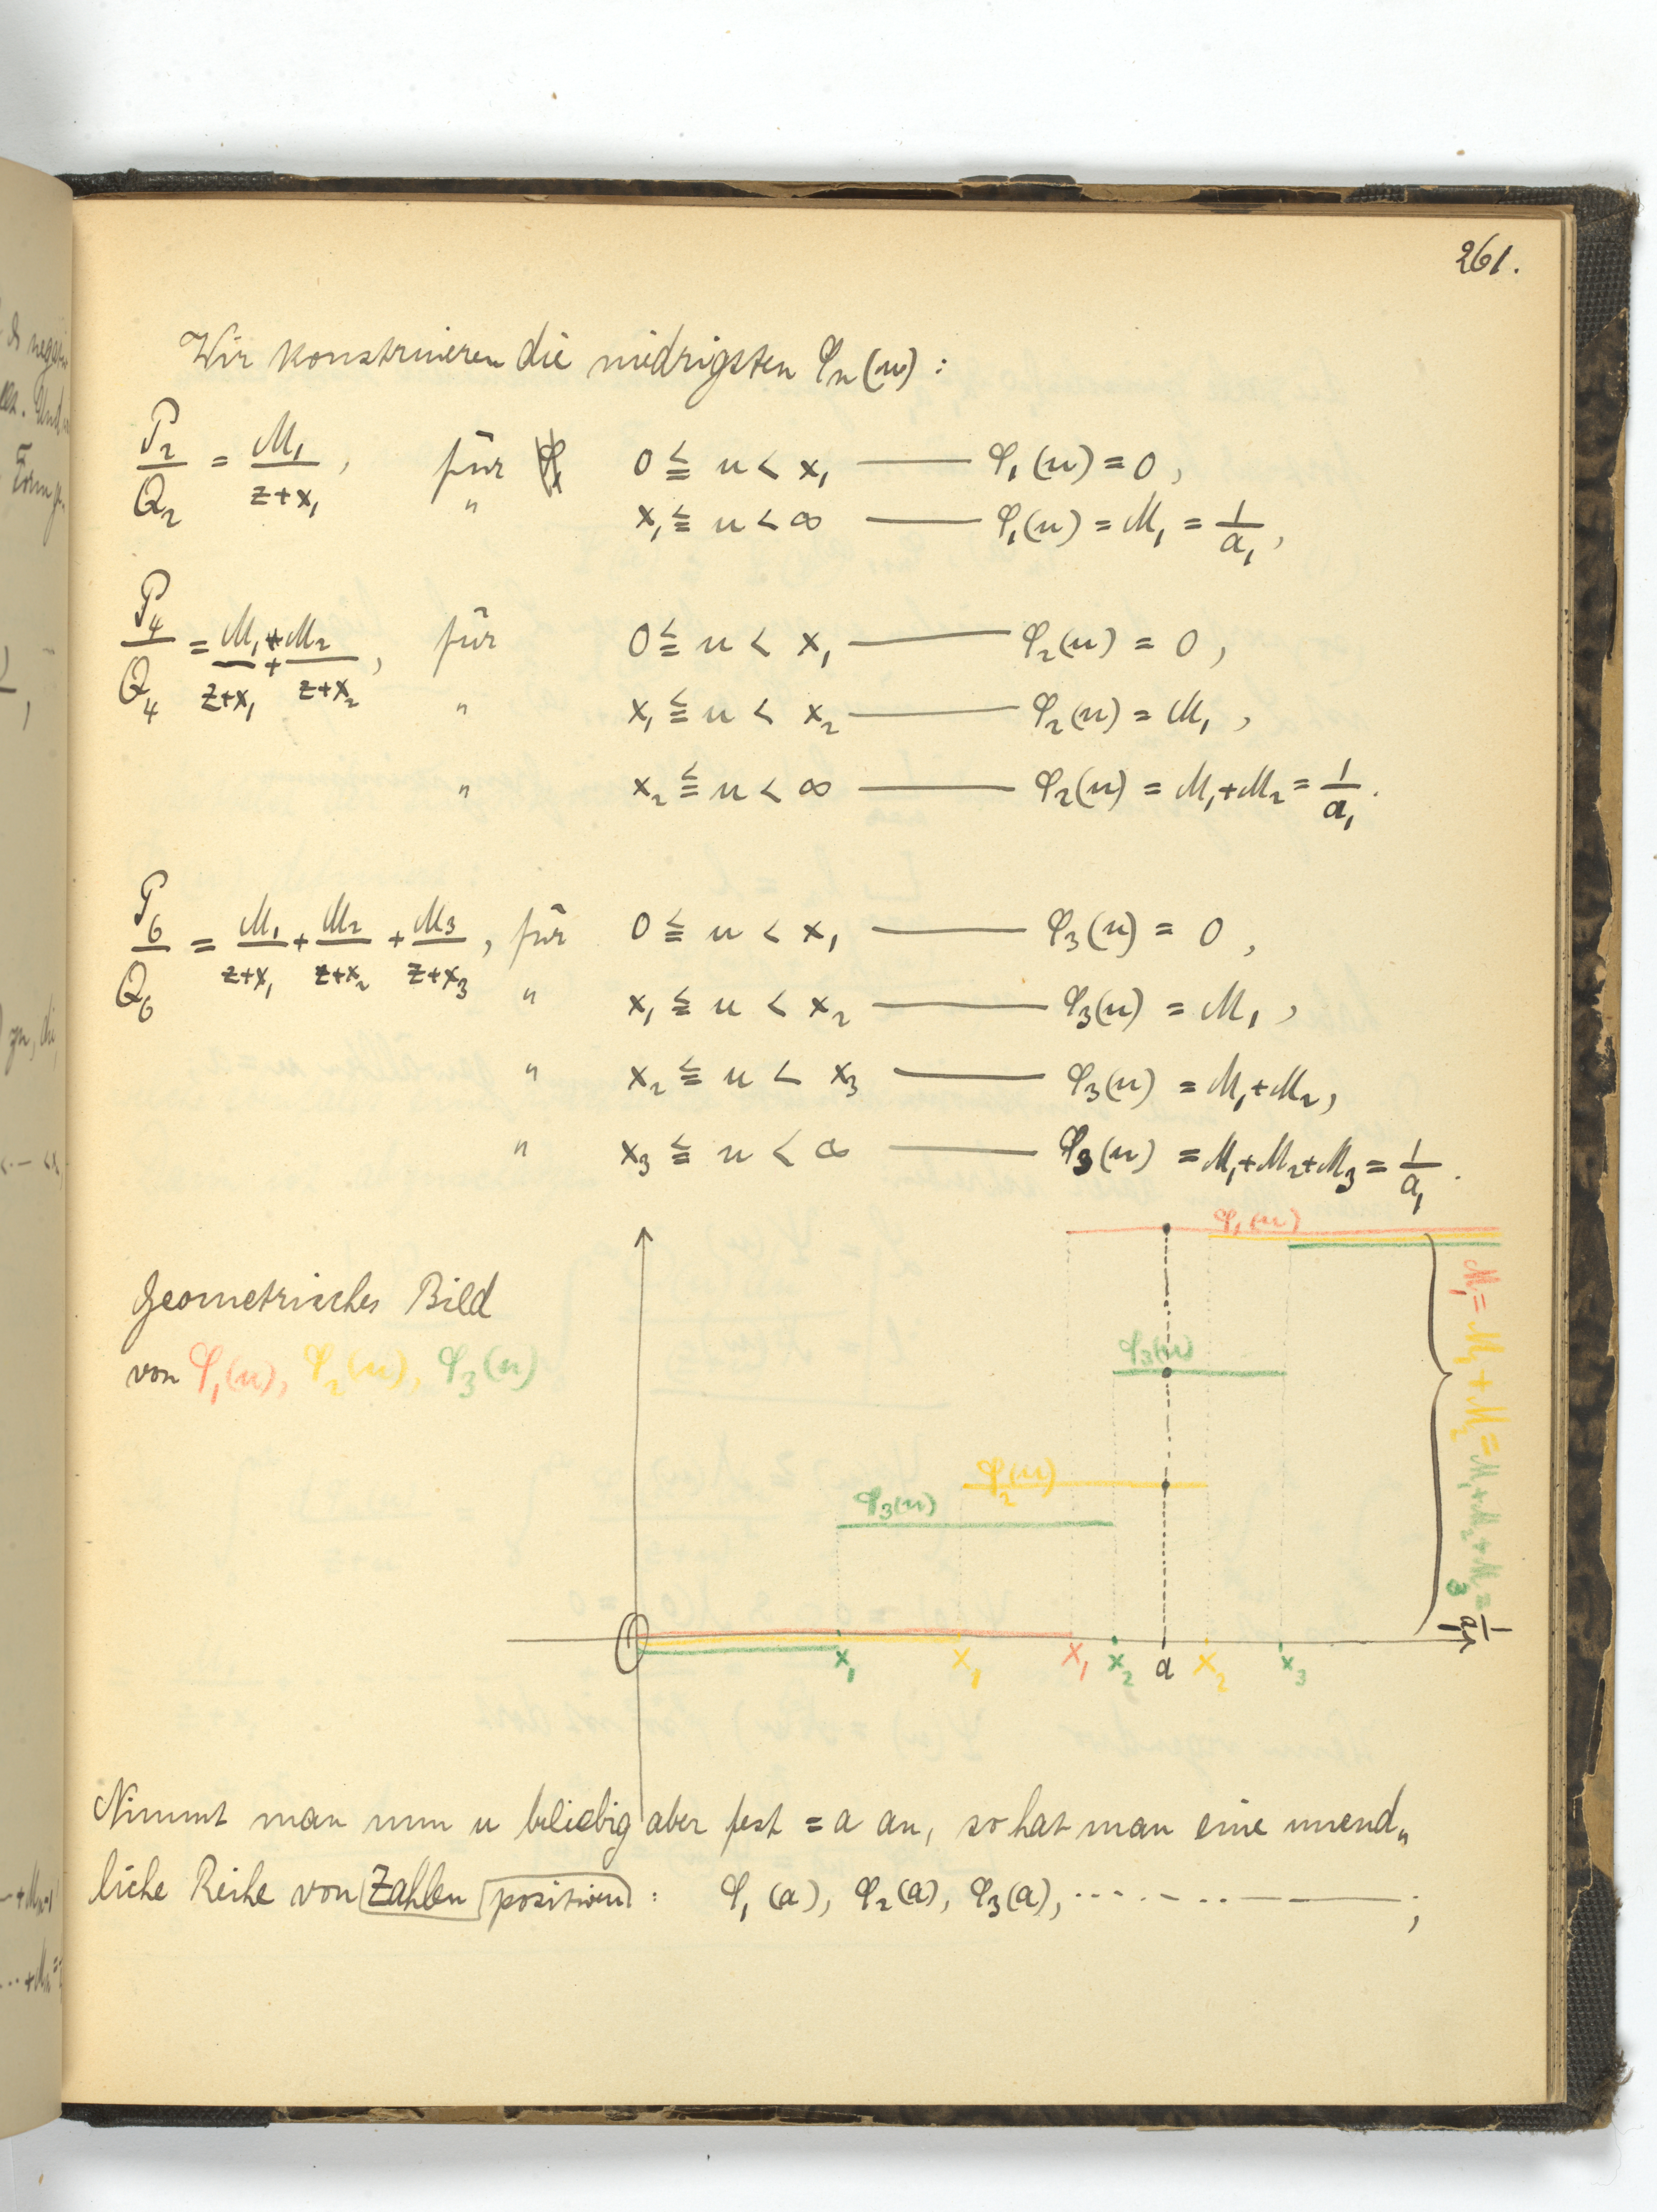 261.
Wir konstruieren die niedrigsten φₙ(u) :
P₂/Q₂ = M₁/(z+x₁) , für 0 ≦ u < x₁ —— φ₁(u) = 0 ,
" x₁ ≦ u < ∞ —— φ₁(u) = M₁ = 1/a₁ ,
P₄/Q₄ = M₁/(z+x₁) + M₂/(z+x₂) , für 0 ≦ u < x₁ —— φ₂(u) = 0 ,
" x₁ ≦ u < x₂ —— φ₂(u) = M₁ ,
" x₂ ≦ u < ∞ —— φ₂(u) = M₁+M₂ = 1/a₁ .
P₆/Q₆ = M₁/(z+x₁) + M₂/(z+x₂) + M₃/(z+x₃) , für 0 ≦ u < x₁ —— φ₃(u) = 0 ,
" x₁ ≦ u < x₂ —— φ₃(u) = M₁ ,
" x₂ ≦ u < x₃ —— φ₃(u) = M₁+M₂ ,
" x₃ ≦ u < ∞ —— φ₃(u) = M₁+M₂+M₃ = 1/a₁ .
Geometrisches Bild
von φ₁(u), φ₂(u), φ₃(u)
φ₁(u)
φ₃(u)
φ₂(u)
φ₃(u)
M₁ = M₁+M₂ = M₁+M₂+M₃ = 1/a₁
0 x₁ x₁ x₁ x₂ a x₂ x₃
Nimmt man nun u beliebig aber fest = a an, so hat man eine unend„
liche Reihe von Zahlen positiven : φ₁(a), φ₂(a), φ₃(a), ········—— ;